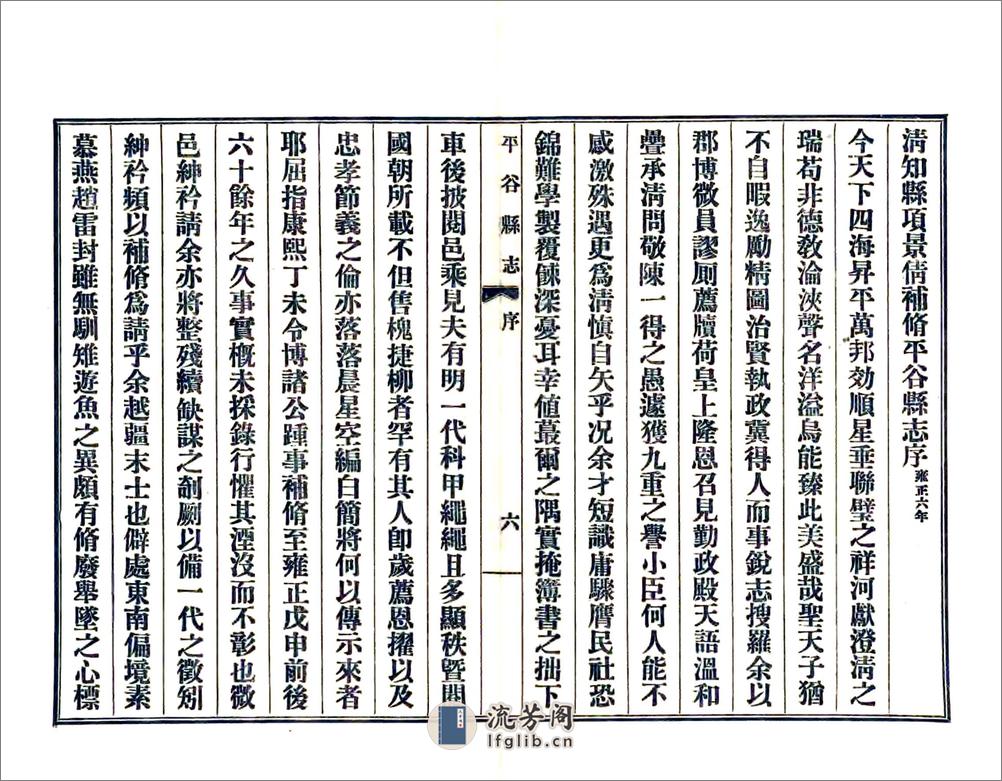 清知縣項景倩補脩平谷縣志序雍正六年
今天下四海昇平萬邦効順星垂聯璧之祥河獻澄清之
瑞苟非德敎淪浹聲名洋溢烏能臻此美盛哉聖天子猶
不自暇逸勵精圖治賢執政冀得人而事銳志搜羅余以
郡博微員謬厠薦牘荷皇上隆恩召見勤政殿天語溫和
疊承清問敬陳一得之愚遽獲九重之譽小臣何人能不
感激殊遇更爲清愼自矢乎况余才短識庸驟膺民社恐
錦難學製覆餗深憂耳幸値蕞爾之隅實掩簿書之拙下
平谷縣志 序 六
車後披閱邑乘見夫有明一代科甲繩繩且多顯秩曁閱
國朝所載不但售槐捷柳者罕有其人卽歲薦恩擢以及
忠孝節義之倫亦落落晨星空編白簡將何以傳示來者
耶屈指康熙丁未令博諸公踵事補脩至雍正戊申前後
六十餘年之久事實槪未採錄行懼其湮沒而不彰也微
邑紳衿請余亦將整殘續缺謀之剞劂以備一代之徵矧
紳衿頻以補脩爲請乎余越疆末士也僻處東南偏境素
慕燕趙雷封雖無馴雉遊魚之異頗有脩廢舉墜之心標
流芳阁
lfglib.cn